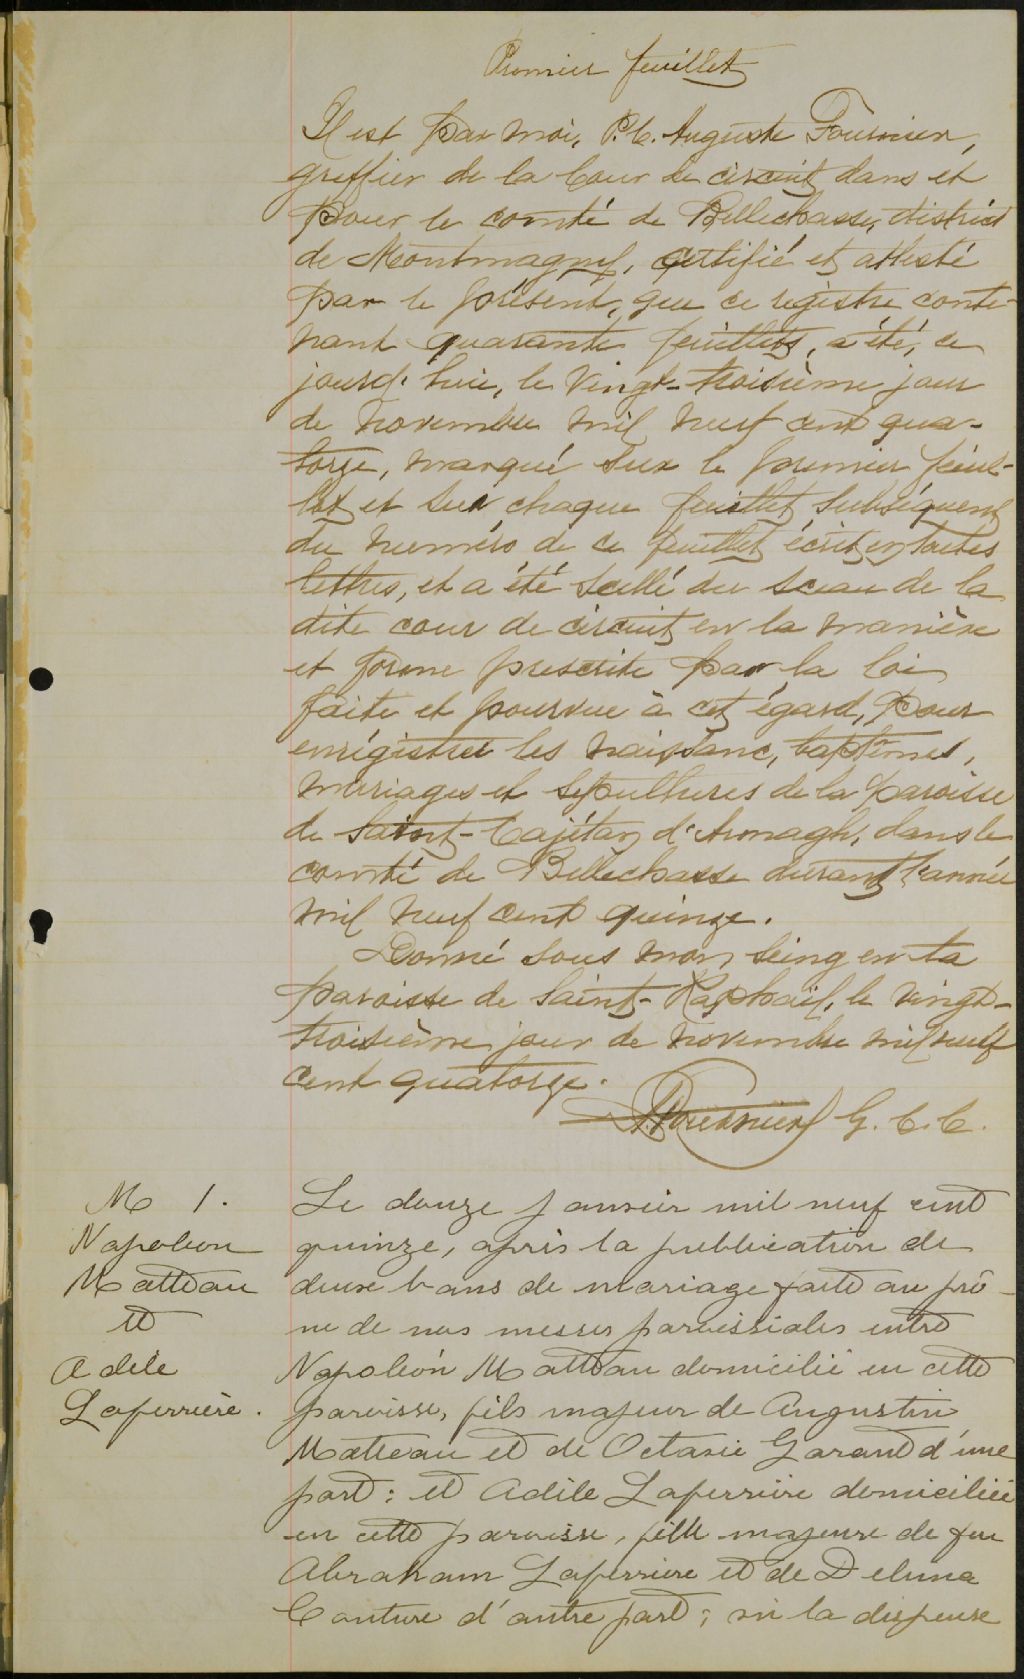 Premier feuillet
Il est par moi, P. C. Auguste Fournier,
greffier de la Cour de circuit dans et
pour le comté de Bellechasse, district
de Montmagny, certifié et attesté
par le présent, que ce régistre conte-
nant quarante feuillets, a été, ce
jourd'hui, le vingt-troisième jour
de novembre mil neuf cent qua-
torze, marqué sur le premier feuil-
let et sur chaque feuillet subséquent
du numéro de ce feuillet écrit en toutes
lettres, et a été scellé du sceau de la
dite cour de circuit en la manière
et forme prescrite par la loi
faite et pourvue à cet égard, pour
enrégistrer les naissanc, baptêmes,
mariages et sépultures de la paroisse
de Saint-Cajétan d'Armagh, dans le
comté de Bellechasse durant l'année
mil neuf cent quinze.
Donné sous mon seing en la
paroisse de Saint-Raphaël, le vingt-
troisième jour de novembre mil neuf
cent quatorze.
Fournier G. C. C.
M 1.
Napoleon
Matteau
et
Adèle
Laferrière.
Le douze janvier mil neuf cent
quinze, après la publication de
deux bans de mariage faite au prô-
ne de nos messes paroissiales entre
Napoléon Matteau domicilié en cette
paroisse, fils majeur de Augustin
Matteau et de Octavie Garant d'une
part; et Adèle Laferrière domiciliée
en cette paroisse, fille majeure de feu
Abraham Laferriere et de Delima
Couture d'autre part; vu la dispense